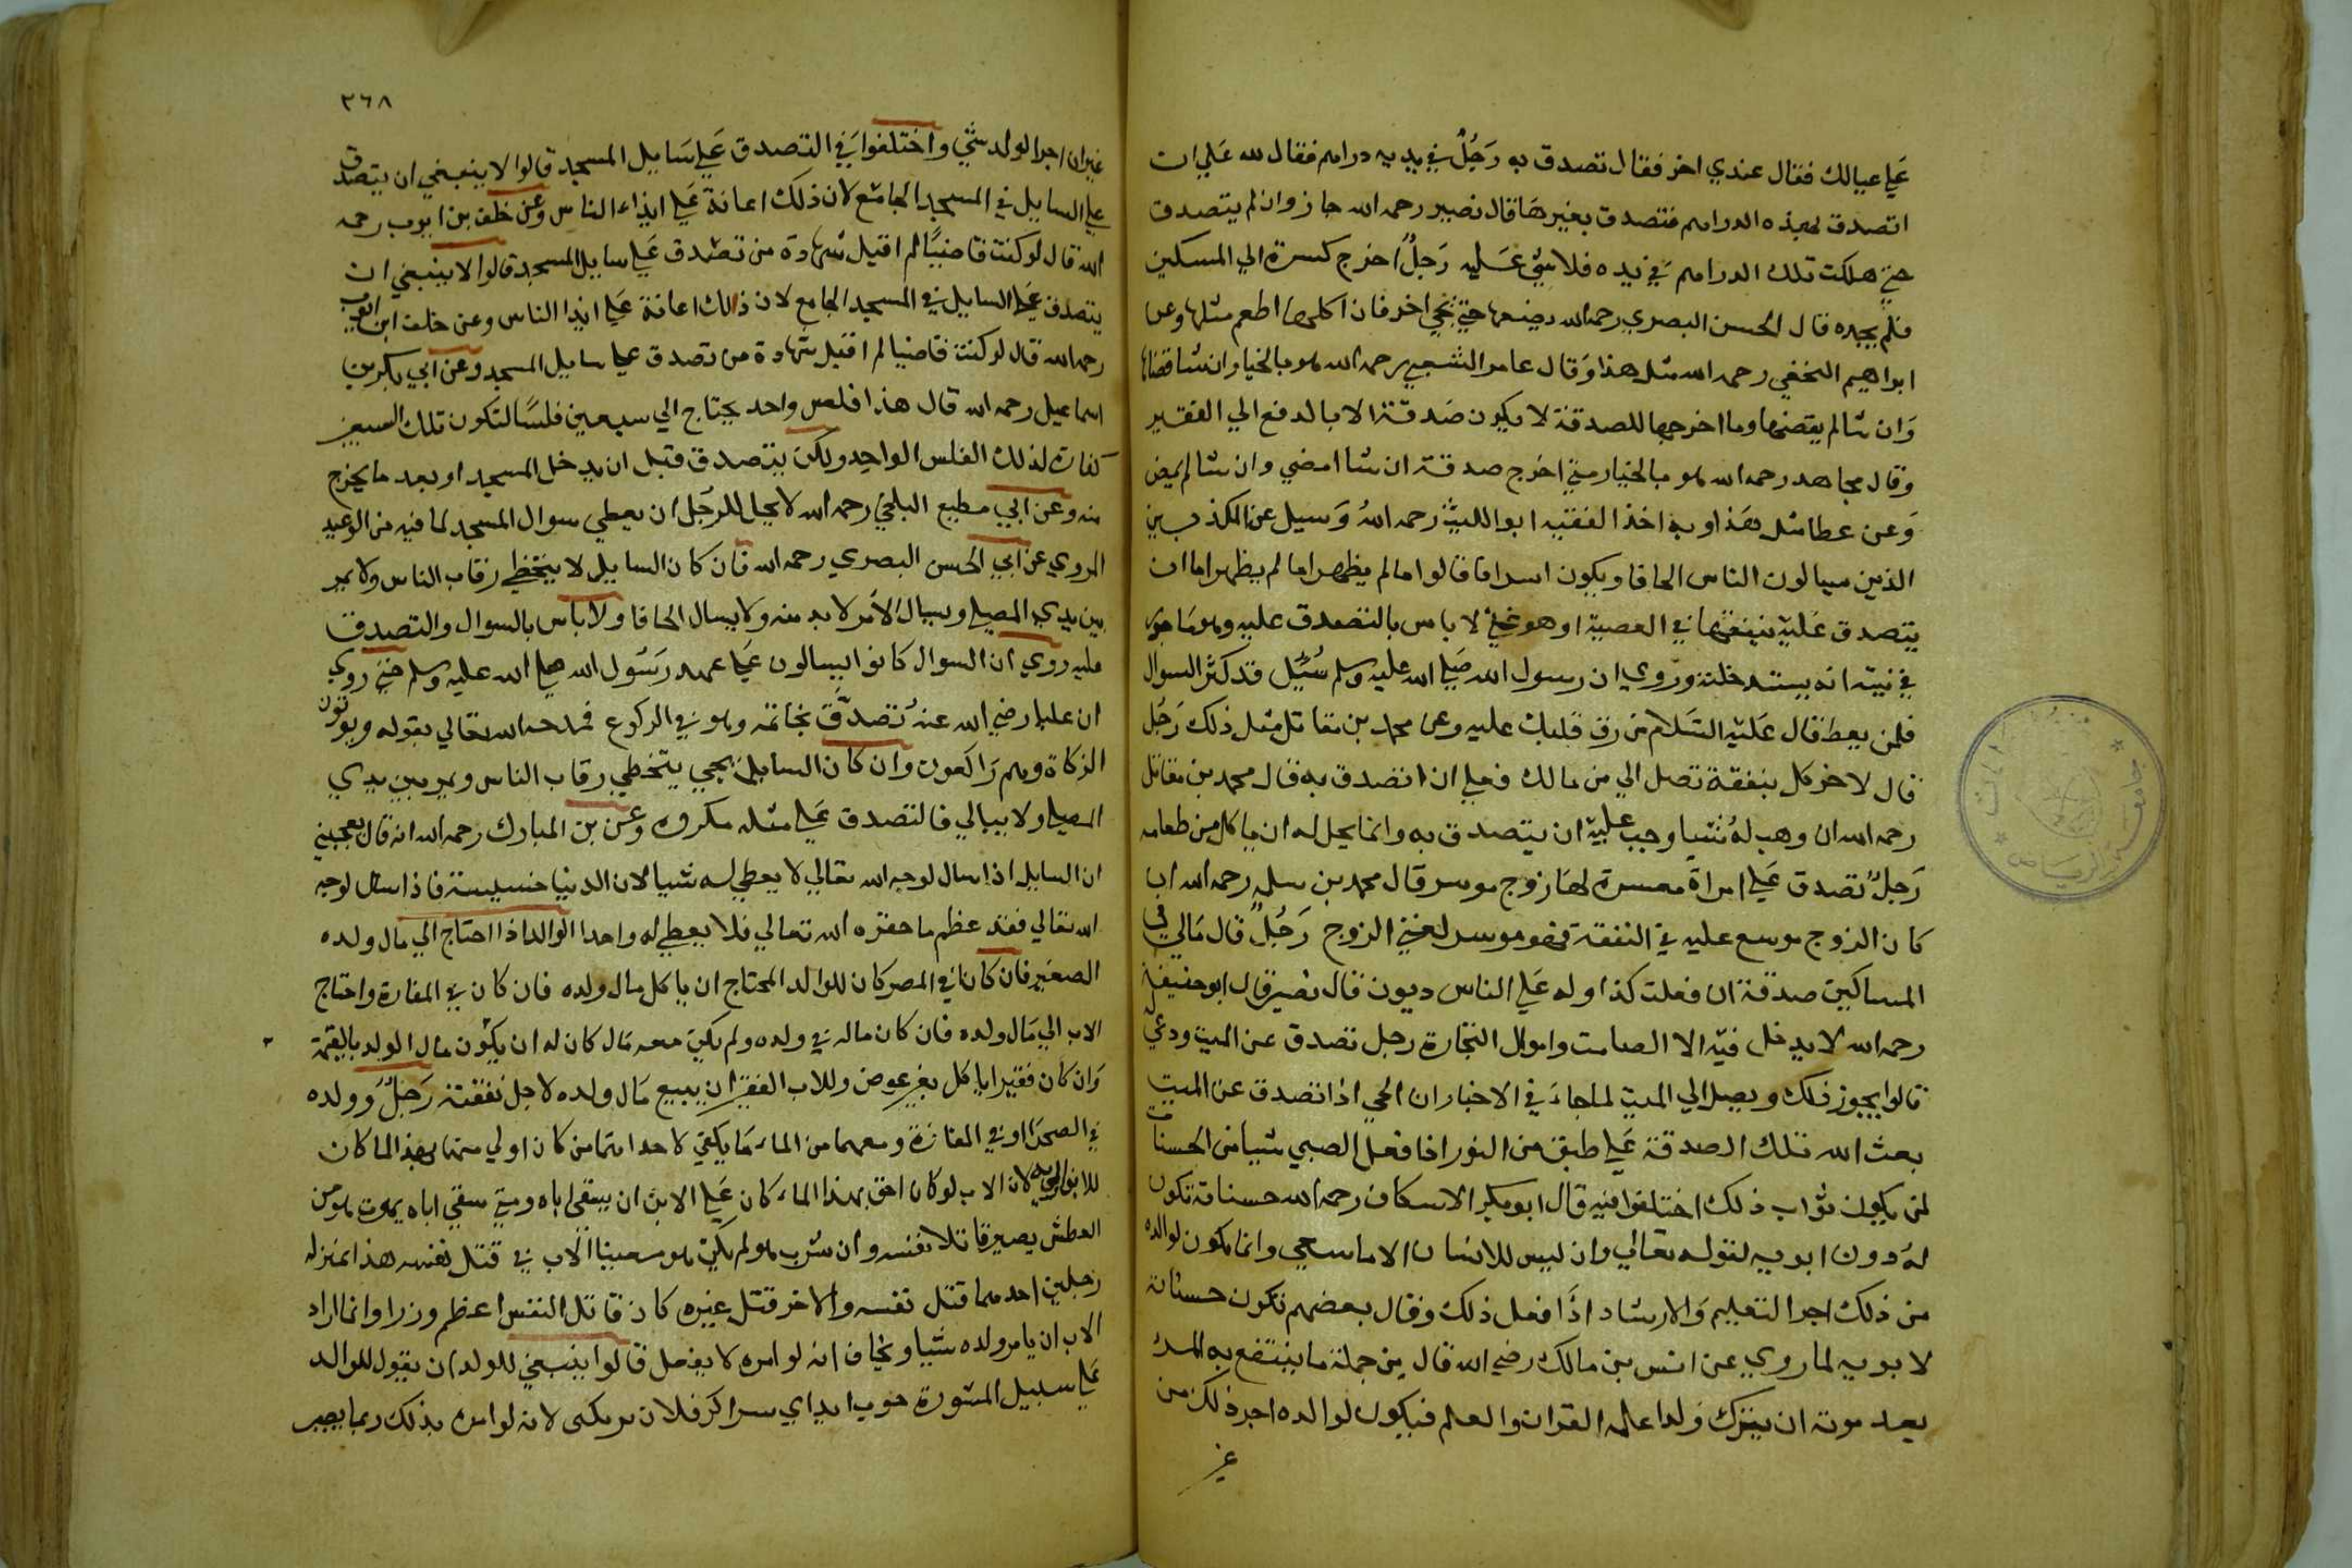 علي عيالك فقال عندي اخر فقال تصدق به رَجُلٌ في يديه دراهم فقال لله علي ان
اتصدق بهذه الدراهم فتصدق بغيرها قال نصير رحمه الله جاز وان لم يتصدق
حتي هلكت تلك الدراهم في يده فلا شي عَليه رَجلٌ اخرج كسرة الي المسكين
فلم يجده قال الحسن البصري رحمه الله يضعها حتي يجي اخر فان اكلها اطعم مثلها وعن
ابراهيم النخعي رحمه الله مثل هذا وَقال عامر الشعبي رحمه الله هو بالخيار ان شا قضاها
وَان شا لم يقضها وما اخرجها للصدقة لا يكون صَدقة الا بالدفع الي الفقير
وقال مجاهد رحمه الله هو بالخيار متي اخرج صدقة ان شا امضي وان شا لم يمض
وَعن عطا مثل هَذا وبه اخذ الفقيه ابو الليث رحمه اللهُ وَسيل عن المكذبين
الذين يسالون الناس الحافا وياكلون اسرافا قالوا ما لم يظهر اما لم يظهر اما ان
يتصدق عَليه ينفقها في المعصية او هو غني لا باس بالتصدق عليه وهو مَاجور
في نيته انه يستد خلته ورُوي ان رسول الله صَلي الله عليه وسلم سُيِل قد كثر السوال
فلمن يعط قال عَليه السَلام من رق قلبك عليه وعن محمد بن مقاتل مثل ذلك رَجُل
قال لاخر كل بنفقة تصل الي من مالك فعلي ان اتصدق به قال محمد بن مقاتل
رحمه الله ان وهب لهُ شيا وجب عليه ان يتصدق به وانما يحل له ان ياكل من طعامه
رَجلٌ تصدق عَلي امراة معسرة لهَا زوج موسر قال محمد بن سلمه رحمه الله ان
كان الزوج موسع عليه في النفقة فهو موسر لغني الزوج رَجُلٌ قال مَالي في
المساكين صدقة ان فعلت كذا وله عَلي الناس ديون قال نصير قال ابو حنيفة
رحمه الله لا يدخل فيه الا الصامت واموال التجارة رجل تصدق عن الميت ودعي له
قالوا يجوز ذلك ويصل الي الميت لما جاءَ في الاخبار ان الحي اذا تصدق عن الميت
بعث الله تلك الصدقة عَلي طبق من النور اذا فعل الصبي شيا من الحسنات
لمن يكون ثواب ذلك اختلفوا فيه قال ابو بكر الاسكاف رحمه الله حسناته تكون
لهُ دون ابويه لقوله تعالي وان ليس للانسان الا ما سعي وانما يكون لوالده
من ذلك اجر التعليم وَالارشاد اذَا فعل ذلك وقال بعضهم تكون حسناته
لابويه لما روي عن انس بن مالك رضي الله قال من جملة ما ينتفع به المرء
بعد موته ان يترك وَلدا علمه القران والعلم فيكون لوالده اجر ذلك من
غير
٣٦٨
غير ان اجر الولد شي واختلفوا في التصدق عَلي سَايل المسجد قالوا لا ينبغي ان يتصدق
علي السايل في المسجد الجامع لان ذلك اعانة عَلي ايذاء الناس وعن خلف بن ايوب رحمه
الله قال لو كنت قاضيًا لم اقبل شهادة من تصدق عَلي سايل المسجد قالوا لا ينبغي ان
يتصدق عَلي السايل في المسجد الجامع لان ذلك اعانة عَلي ايذا الناس وعن خلف ابن ايوب
رحمه الله قال لو كنت قاضيا لم اقبل شهادة من تصدق علي سايل المسجد وعن ابي بكر بن
اسماعيل رحمه الله قال هذا فلس واحد يحتاج الي سبعين فلسًا لتكون تلك السبعين
كفارة لذلك الفلس الواحد ولكن يتصدق قبل ان يدخل المسجد او بعد ما يخرج
منه وعن ابي مطيع البلخي رحمه الله لا يحل للرَجُل ان يعطي سوال المسجد لما فيه من الوعيد
المروي عن ابي الحسن البصري رحمه الله فان كان السايل لا يتخطي رقاب الناس ولا يمر
بين يدي المصلي ويسال الامَر لا بد منه ولا يسال الحافا ولا باس بالسوال والتصدق
عليه روي ان السوال كانوا يسالون عَلي عهد رَسُول الله صلي الله عليه وسلم حتي روي
ان عليا رضي الله عنهُ تصدَّق بخاتمه وهو في الركوع فمدحه الله تعالي بقوله ويوتون
الزكاة وهم رَاكعون وان كان السايل يجي يتخطي رقاب الناس ويمر بين يدي
المصلي ولا يبالي فالتصدق عَلي مثله مكروه وعن بن المبارك رحمه الله انه قال يعجبني
ان السايل اذا سال لوجه الله تعالي لا يعطي له شيا لان الدنيا خسيسة فاذا سال لوجه
الله تعالي فقد عظم ما حقره الله تعالي فلا يعطي له واحدا الوالد اذا احتاج الي مال ولده
الصغير فان كانا في المصر كان للوالد المحتاج ان ياكل مال ولده فان كان في المفازة واحتاج
الاب الي مَال ولده فان كان ماله في ولده ولم يكن معه مَال كان له ان يكون مال الولد بالقيمة
وَان كان فقيرا ياكل بغير عوض وللاب الفقير ان يبيع مَال ولده لاجل نفقته رَجلٌ وَولده
في الصحرَا او في المفازة ومعهما من الماء مَا يكفي لاحدهما من كان اولي منهما بهذا الما كان
للابن لان الاب لو كان احق بهذا الماء كان عَلي الابن ان يسقي اباه ومتي سقي اباه يموت هو من
العطش يصير قاتلا نفسه وان شرب هو لم يكن هو معينا الاب في قتل نفسه هذا بمنزله
رَجلين احدهما قتل نفسه والاخر قتل غيره كان قاتل النفس اعظم وزرا وانما اراد
الاب ان يامر ولده شيا ويخاف انه لو امره لا يفعل قالوا ينبغي للولد ان يقول للوالد
عَلي سبيل المشورة خوب ايد اي بسر اكر فلان لانه لو امره بذلك ربما يصير